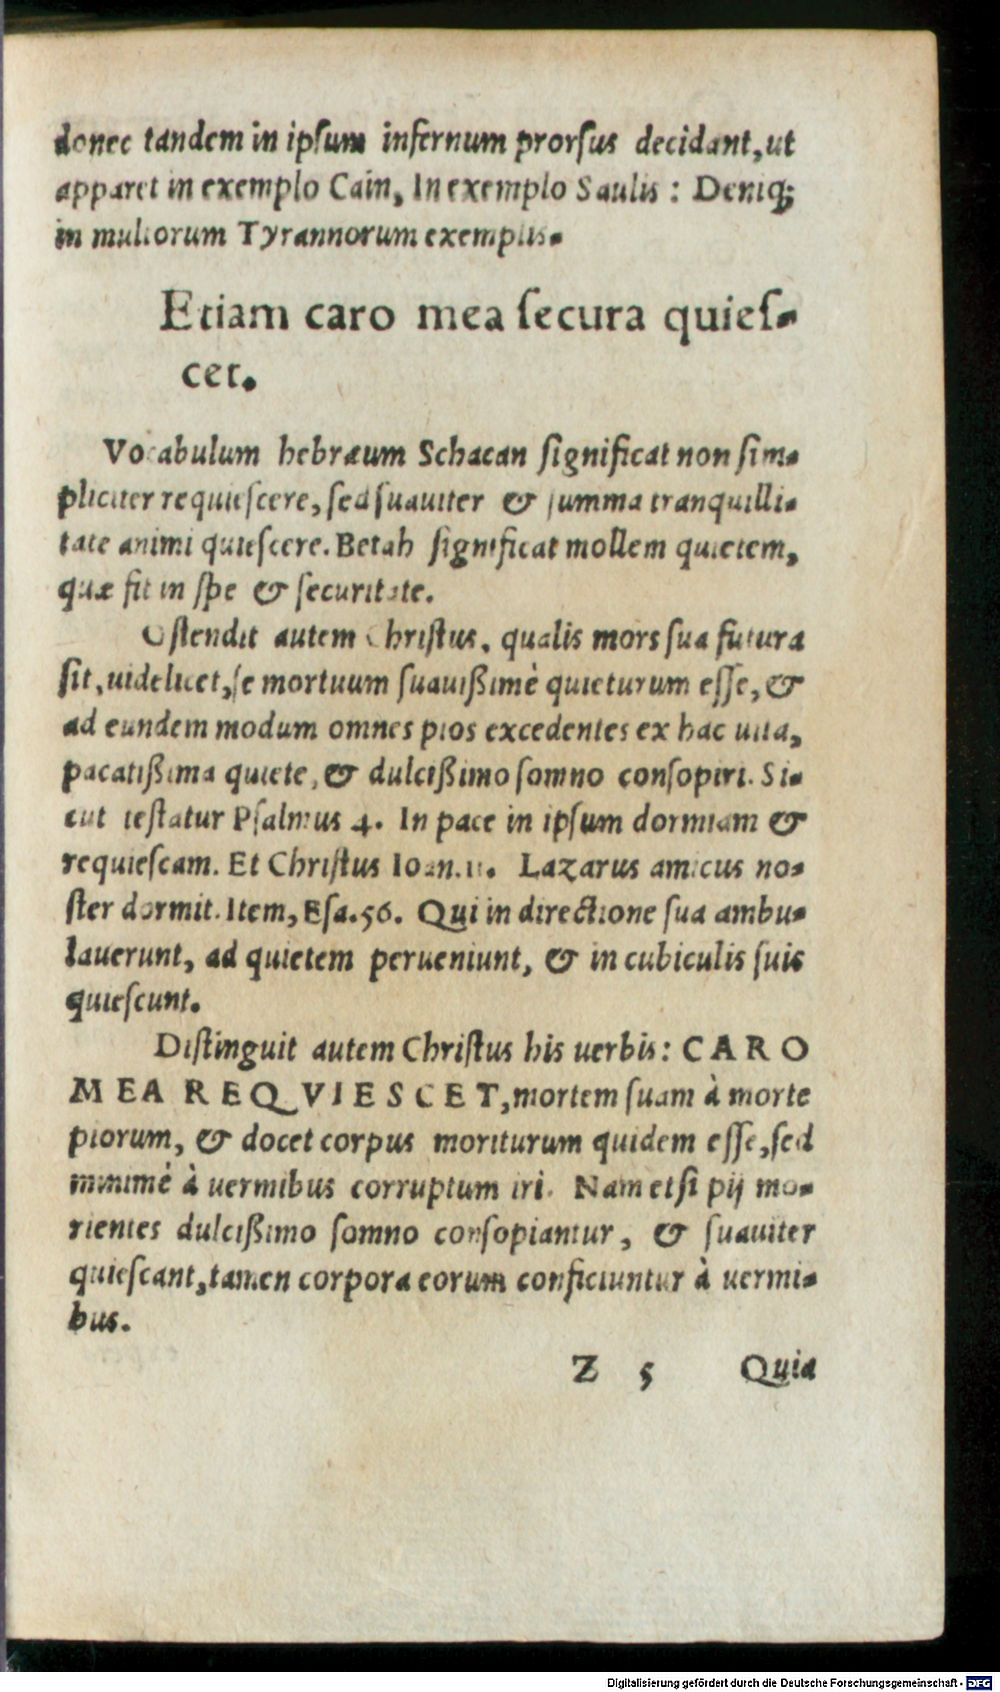 donec tandem in ipſum infernum prorſus decidant, ut
apparet in exemplo Cain, In exemplo Saulis : Deniq;
in multorum Tyrannorum exemplis.
Etiam caro mea ſecura quieſ-
cet.
Vocabulum hebræum Schacan ſignificat non ſim-
pliciter requieſcere, ſed ſuauiter & ſumma tranquilli-
tate animi quieſcere. Betah ſignificat mollem quietem,
quæ fit in ſpe & ſecuritate.
Oſtendit autem Chriſtus, qualis mors ſua futura
ſit, uidelicet, ſe mortuum ſuauißimè quieturum eſſe, &
ad eundem modum omnes pios excedentes ex hac uita,
pacatißima quiete, & dulcißimo ſomno conſopiri. Si-
cut teſtatur Pſalmus 4. In pace in ipſum dormiam &
requieſcam. Et Chriſtus Ioan. 11. Lazarus amicus no-
ſter dormit. Item, Eſa. 56. Qui in directione ſua ambu-
lauerunt, ad quietem perueniunt, & in cubiculis ſuis
quieſcunt.
Diſtinguit autem Chriſtus his uerbis: CARO
MEA REQVIESCET, mortem ſuam à morte
piorum, & docet corpus moriturum quidem eſſe, ſed
minimè à uermibus corruptum iri. Nam etſi pij mo-
rientes dulcißimo ſomno conſopiantur, & ſuauiter
quieſcant, tamen corpora eorum conficiuntur à uermi-
bus.
Z 5 Quia
Digitalisierung gefördert durch die Deutsche Forschungsgemeinschaft - DFG